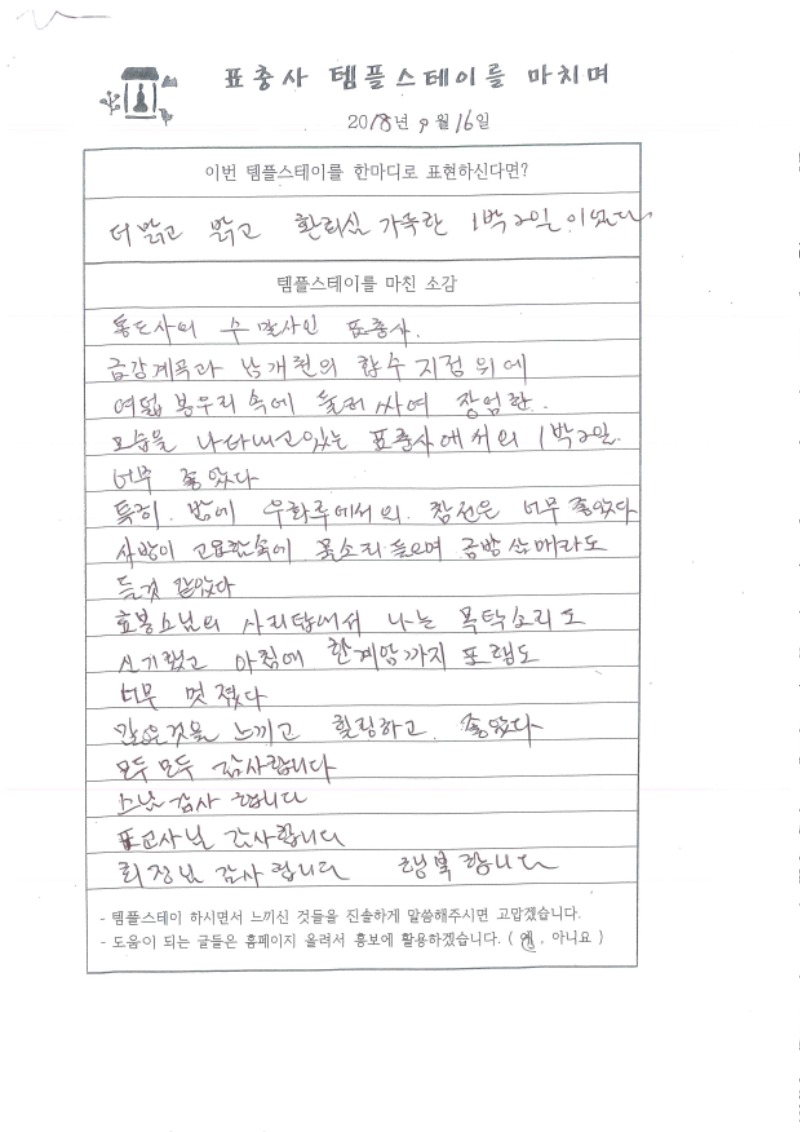 표충사 템플스테이를 마치며
2018년 9월 16일
이번 템플스테이를 한마디로 표현하신다면?
더 밝고 맑고 환희심 가득한 1박2일 이었다
템플스테이를 마친 소감
통도사의 수 말사인 표충사.
금강계곡과 남개천의 합수 지점 위에
여덟 봉우리 속에 둘러 싸여 장엄한.
모습을 나타내고있는 표충사에서의 1박2일.
너무 좋았다
특히. 밤에 우화루에서의. 참선은 너무 좋았다
사방이 고요함속에 물소리 들으며 금방 삼매라도
들것 같았다
효봉스님의 사리탑에서 나는 목탁소리도
신기했고 아침에 한계암까지 포행도
너무 멋 졌다
많은것을 느끼고 힐링하고. 좋았다
모두 모두 감사합니다
스님 감사 합니다
포교사님 감사합니다
회장님 감사 합니다 행복 합니다
- 템플스테이 하시면서 느끼신 것들을 진솔하게 말씀해주시면 고맙겠습니다.
- 도움이 되는 글들은 홈페이지 올려서 홍보에 활용하겠습니다. ( 예 , 아니요 )